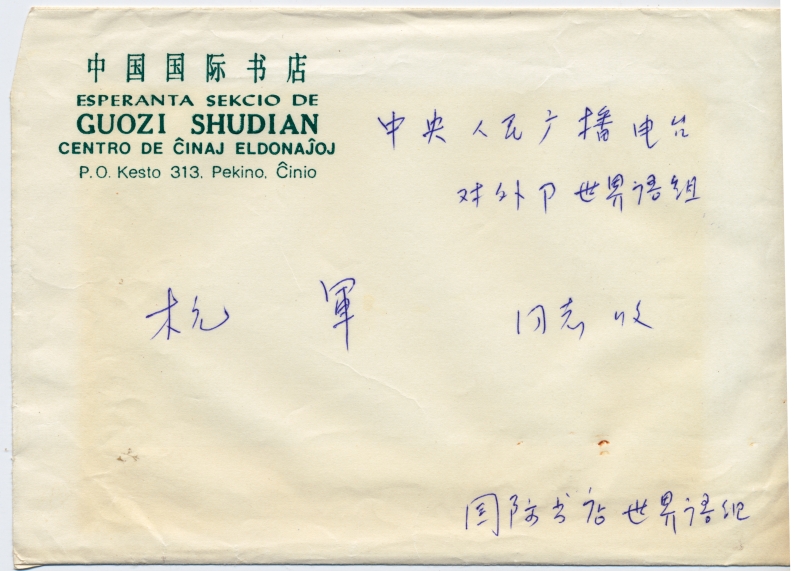 中国国际书店
ESPERANTA SEKCIO DE
GUOZI SHUDIAN
CENTRO DE ĈINAJ ELDONAĴOJ
P.O. Kesto 313. Pekino, Ĉinio
中央人民广播电台
对外卩世界语组
杭 軍 同志收
国际书店世界语组